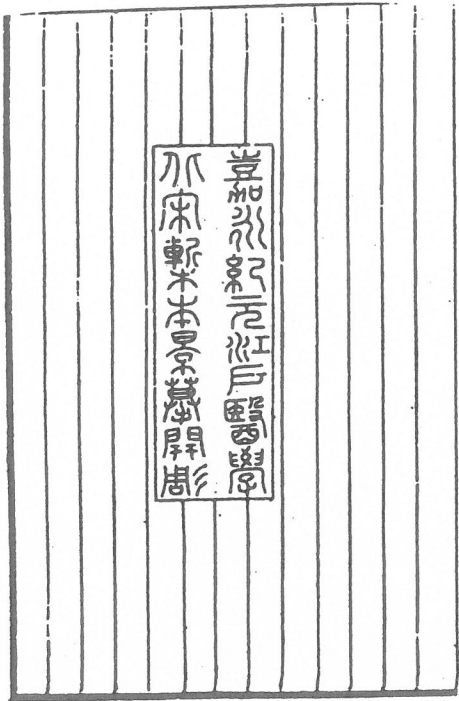 嘉永紀元江戶醫學
北宋槧本景摹開彫